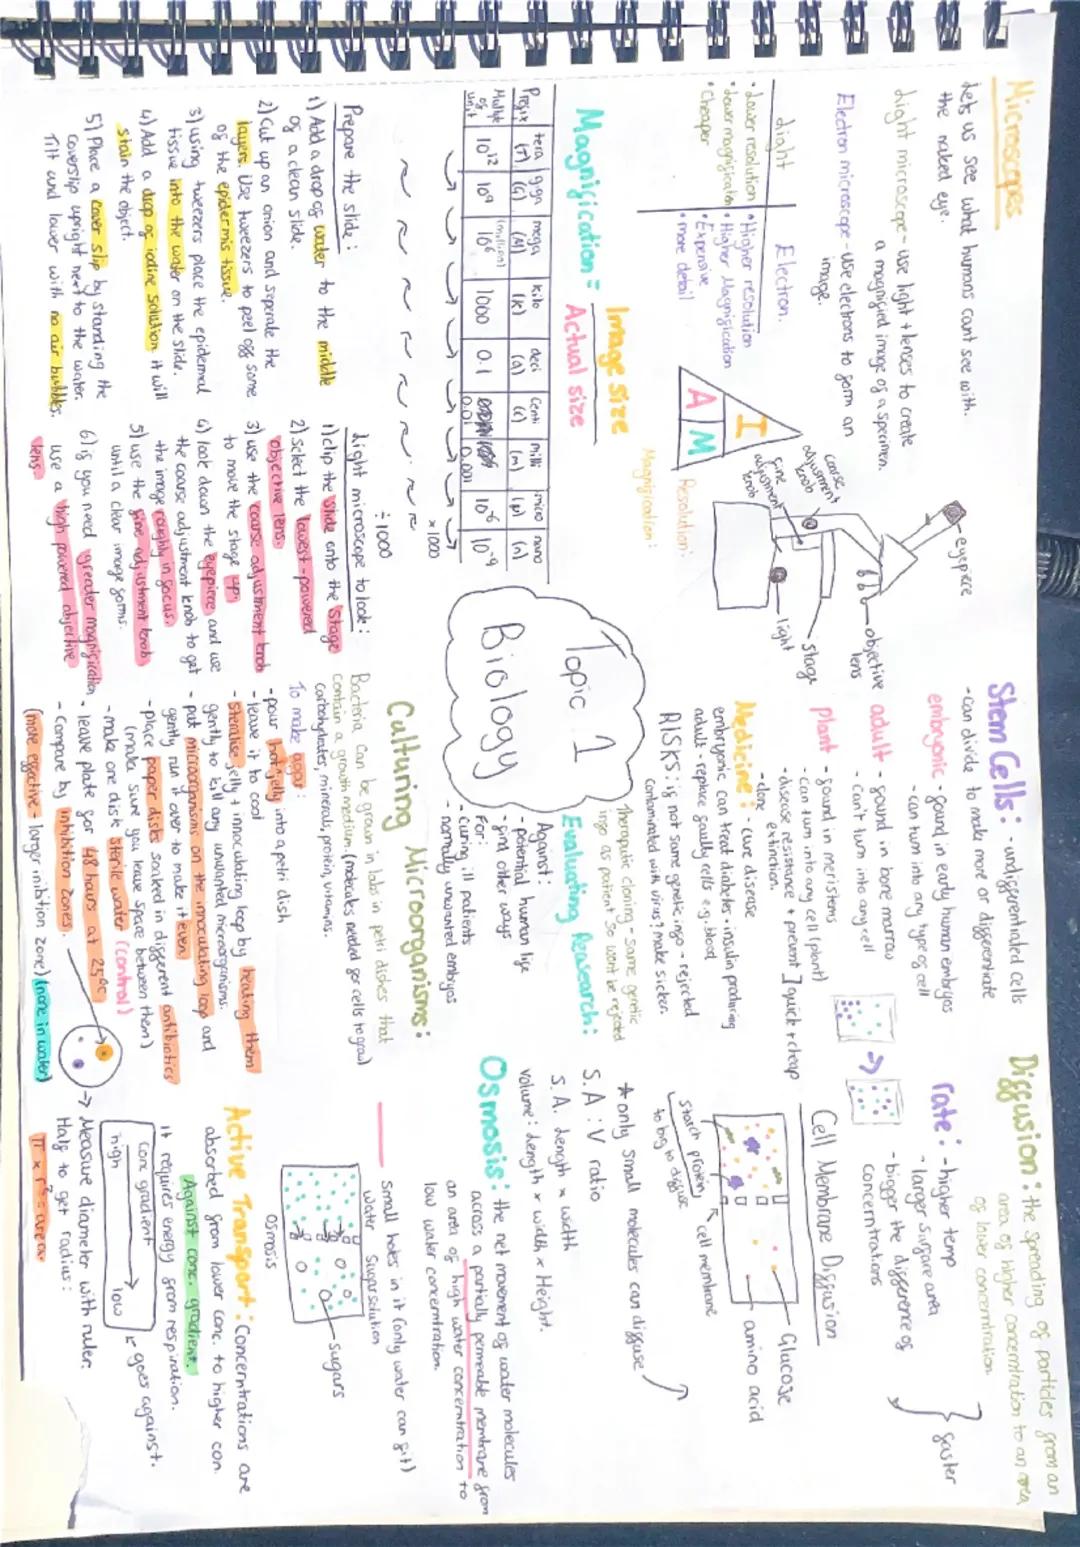 Microscopes
Lets us see what humans cant see with.
the naked eye.
Light microscope - use light + lenses to create
a magnified image of a specimen.
Electron microscope - use electrons to form an
image.
Light
Electron.
• Lower resolution
• Lower magnification
• Cheaper
• Higher resolution
• Higher Magnification
• Expensive
• more detail
I
A M
Resolution:
Magnification:
eyepiece
coarse
adjustment
knob
fine
adjustment
knob
objective
lens
stage
light
Magnification = Image size
Actual size
Prefix tera (T) giga (G) mega (M) kilo (k) deci (d) centi (c) milli (m) micro (μ) nano (n)
Multiple of unit 10¹² 10⁹ 10⁶ (million) 1000 0.1 0.01 0.001 10⁻⁶ 10⁻⁹
×1000
÷1000
Prepare the slide:
1) Add a drop of water to the middle
of a clean slide.
2) Cut up an onion and seperate the
layers. Use tweezers to peel off some
of the epidermis tissue.
3) using tweezers place the epidermal
tissue into the water on the slide.
4) Add a drop of iodine solution, it will
stain the object.
5) Place a cover slip by standing the
coverslip upright next to the water.
Tilt and lower with no air bubbles.
Light microscope to look:
1) clip the slide onto the stage
2) select the lowest-powered
objective lens.
3) use the coarse adjustment knob
to move the stage up.
4) look down the eyepiece and use
the coarse adjustment knob to get
the image roughly in focus.
5) use the fine adjustment knob
until a clear image forms.
6) if you need greater magnification,
use a high powered objective
lens.
Topic 1
Biology
Stem Cells: - undifferentiated cells
- can divide to make more or differentiate
embryonic - found in early human embryos
- can turn into any type of cell
adult - found in bone marrow
- can't turn into any cell
plant - found in meristems
- can turn into any cell (plant)
- disease resistance + prevent
extinction.
- clone
] quick + cheap
Medicine: - cure disease
embryonic can treat diabetes - insulin producing
adult - replace faulty cells e.g. blood
RISKS: if not same genetic info - rejected
contaminated with virus? make sicker.
Theraputic cloning - same genetic
info as patient so wont be rejected
Evaluating Reasearch:
Against:
- potential human life
- find other ways
For:
- curing ill patients
- normally unwanted embryos
Culturing Microorganisms:
Bacteria can be grown in labs in petri dishes that
contain a growth medium. (molecules needed for cells to grow)
carbohydrates, minerals, protein, vitamins.
To make agar:
- pour hot jelly into a petri dish
- leave it to cool
- Steralise jelly + innoculating loop by heating them
gently to kill any unwanted microorganisms.
- put microorganisms on the innoculating loop and
gently run it over to make it even.
- place paper disks soaked in different antibiotics
(make sure you leave space between them)
- make one disk sterile water (control)
- leave plate for 48 hours at 25°C
- Compare by inhibition zones.
(more effective - larger inhibition zone)
Diffusion: the spreading of particles from an
area of higher concentration to an area
of lower concentration
rate: - higher temp
- larger surface area
- bigger the difference of
concentrations
} faster
Cell Membrane Diffusion
Glucose
amino acid
cell membrane
Starch protein
to big to diffuse
* only small molecules can diffuse
S.A : V ratio
S.A. Length × width
volume: Length × width × Height.
Osmosis: the net movement of water molecules
across a partially permeable membrane from
an area of high water concentration to
low water concentration.
Small holes in it (only water can fit)
water
Sugar solution
sugars
osmosis
Active Transport: Concentrations are
absorbed from lower conc. to higher con.
Against conc. gradient.
it requires energy from respiration.
conc gradient
high → low
goes against.
→ Measure diameter with ruler.
Half to get radius:
π × r² = area.